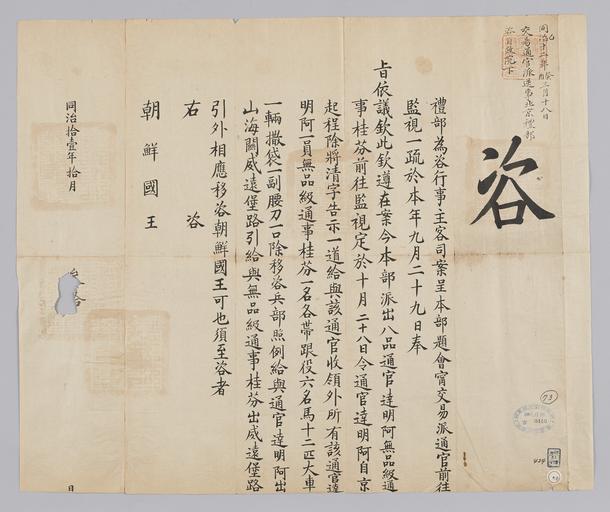 同治十一年
三月十八日
交易通官派送事北京禮部
咨
禮部為咨行事主客司案呈本部題會甯交易派通官前往
監視一疏於本年九月二十九日奉
旨依議欽此欽遵在案今本部派出八品通官達明阿無品級通
事桂芬前往監視定於十月二十八日令通官達明阿自京
起程除將清字告示一道給與該通官收領外所有該通官達
明阿一員無品級通事桂芬一名各帶跟役六名馬十二匹大車
一輛撒袋一副腰刀一口除移咨兵部照例給與通官達明阿出
山海關威遠堡路引給與無品級通事桂芬出威遠堡路
引外相應移咨朝鮮國王可也須至咨者
右 咨
朝鮮國王
同治拾壹年拾月
日
73
424